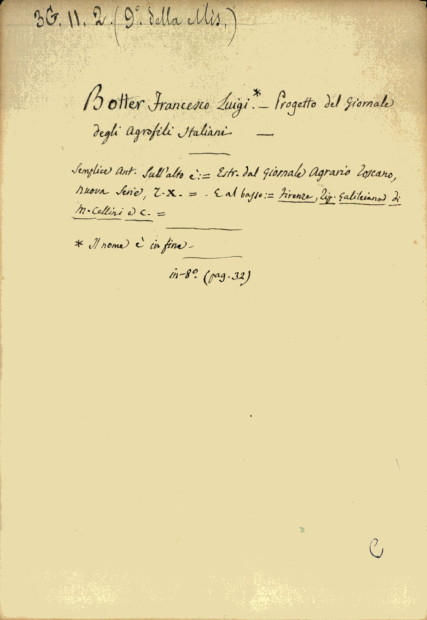 3G. 11. 2. (9ª della Mis.)
Botter Francesco Luigi.* — Progetto del Giornale
degli Agrofili Italiani —
Semplice Ant. Sull'alto è:= Estr. dal Giornale Agrario Toscano,
nuova Serie, T. X. = - E al basso:= Firenze, Tip. Galileiana di
M. Cellini e C. =
* Il nome è in fine -
in-8º (pag. 32)
C